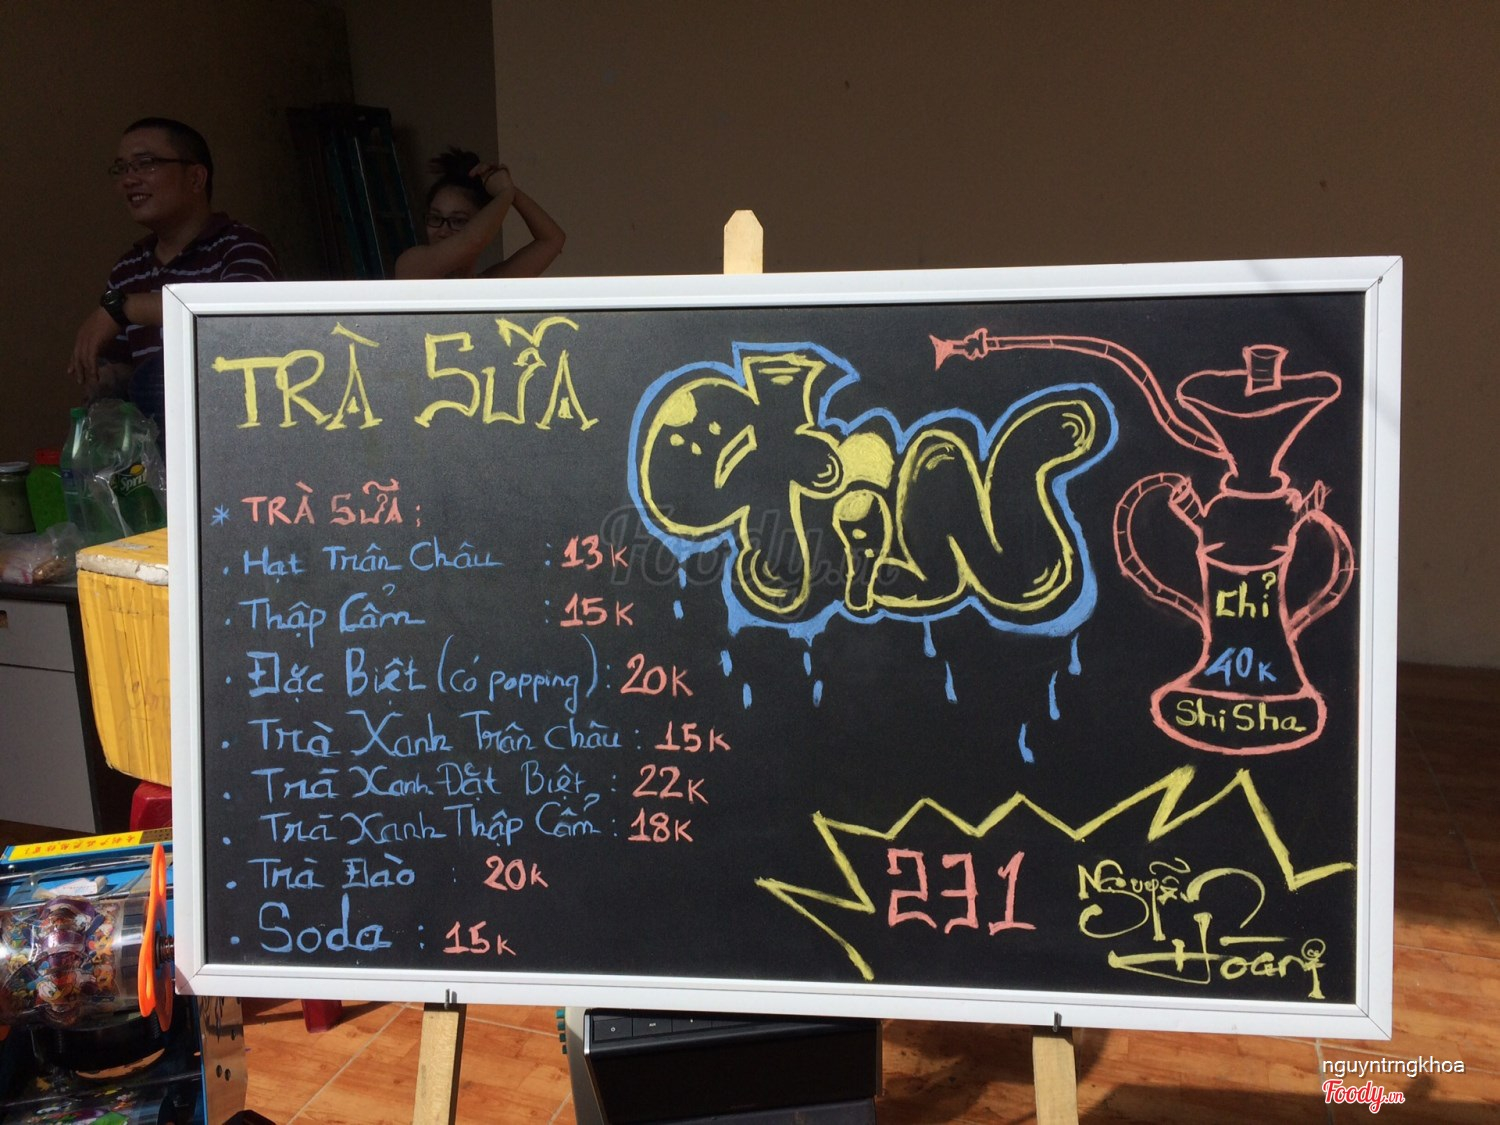 TRÀ SỮA
TiN
* TRÀ SỮA:
. Hạt Trân Châu : 13K
. Thập Cẩm : 15K
. Đặc Biệt (có popping): 20K
. Trà Xanh Trân Châu : 15K
. Trà Xanh Đặt Biệt : 22K
. Trà Xanh Thập Cẩm : 18K
. Trà Đào : 20K
. Soda : 15K
Chỉ
40K
ShiSha
231 Nguyễn Hoàng
Foody.vn
Sprite
nguyntrngkhoa
Foody.vn